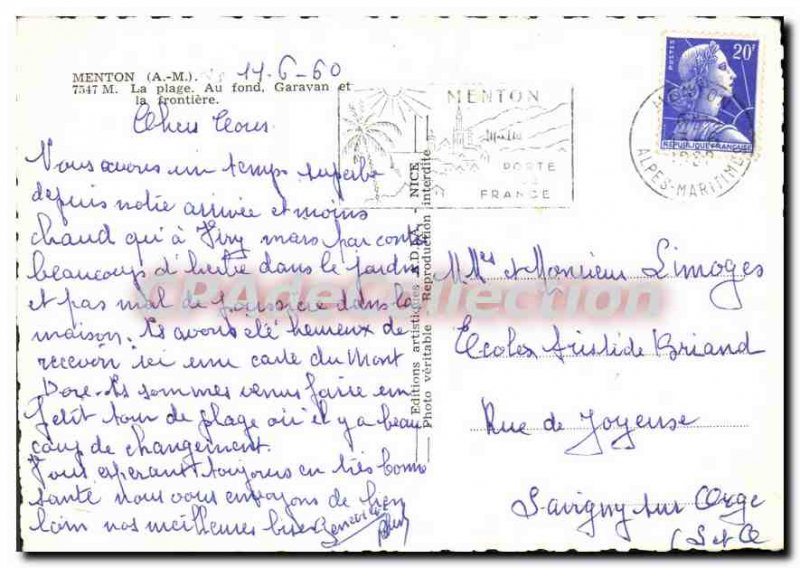 MENTON (A.-M.).
14-6-60
7547 M. La plage. Au fond, Garavan et
la frontière.
Chers tous
Nous avons un temps superbe
depuis notre arrivée et moins
chaud qu'à Viry mais par contre
beaucoup d'herbe dans le jardin
et pas mal de poussière dans la
maison. Ns avons été heureux de
recevoir ici une carte du Mont
Dore. Ns sommes venus faire un
petit tour de plage où il y a beau
coup de changement.
Vous espérant toujours en très bonne
santé nous vous envoyons de bien
loin nos meilleures bises
Editions artistiques - NICE
Photo véritable - Reproduction interdite
MENTON
PORTE
FRANCE
POSTES
20F
REPUBLIQUE FRANÇAISE
ALPES-MARITIMES
Mlle et Monsieur Limoges
Ecoles Aristide Briand
Rue de Joyeuse
Savigny sur Orge
(S et O
CPA Collection